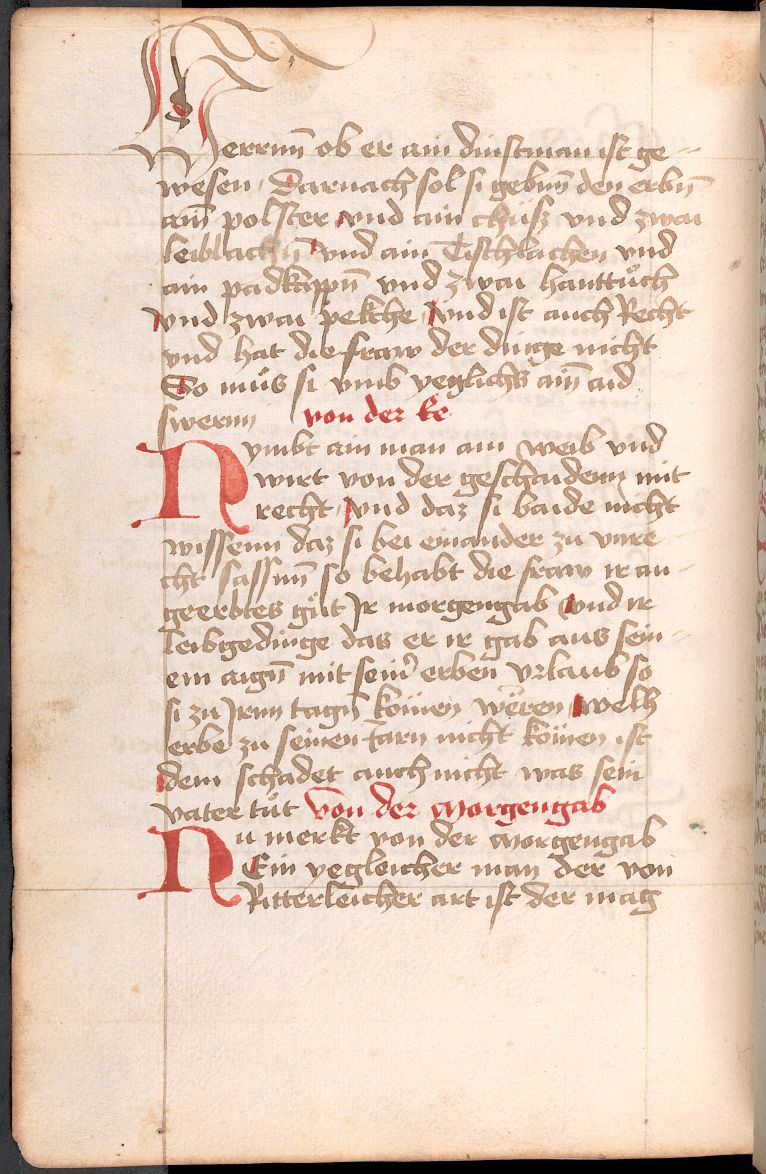 Herrnn ob er ain dinstman ist ge-
wesen Darnach sol si gebnn den erbnn
ainn polster vnd ain chüss vnd zwai
leiblachnn vnd ain Tischlachen vnd
ain padkappnn vnd zwai hanttüch
vnd zwai pekche vnd ist auch Recht
vnd hat die fraw der dinge nicht
So müs si vmb yeglichs ainn aid
swernn von der Ee
Nymbt ain man ain weib vnd
wirt von der geschaidenn mit
recht vnd daz si baide nicht
wissenn daz si bei einander zu vnre-
cht sassnn so behabt die fraw ir an-
geerbtes gůt Jr morgengab vnd ir
leibgedinge das er ir gab aus sein-
em aign mit seiner erben vrlaub so
si zu Jrnn tagn komen weren welh
erbe zu seinen Jarn nicht komen ist
dem schadet auch nicht was sein
vater tůt von der Morgengab
Nu merkt von der Morgengab
Ein yegleicher man der von
Ritterleicher art ist der mag